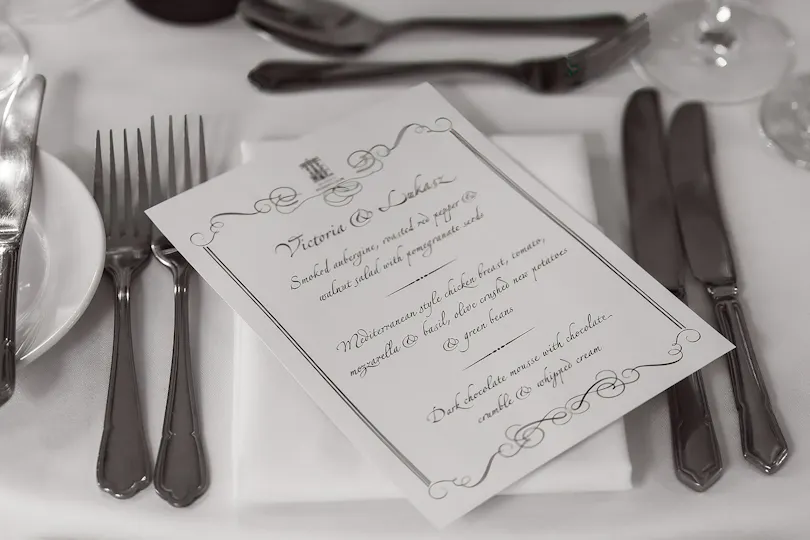 Victoria & Lukasz
Smoked aubergine, roasted red pepper &
walnut salad with pomegranate seeds
Mediterranean style chicken breast, tomato,
mozzarella & basil, olive crushed new potatoes
& green beans
Dark chocolate mousse with chocolate
crumble & whipped cream